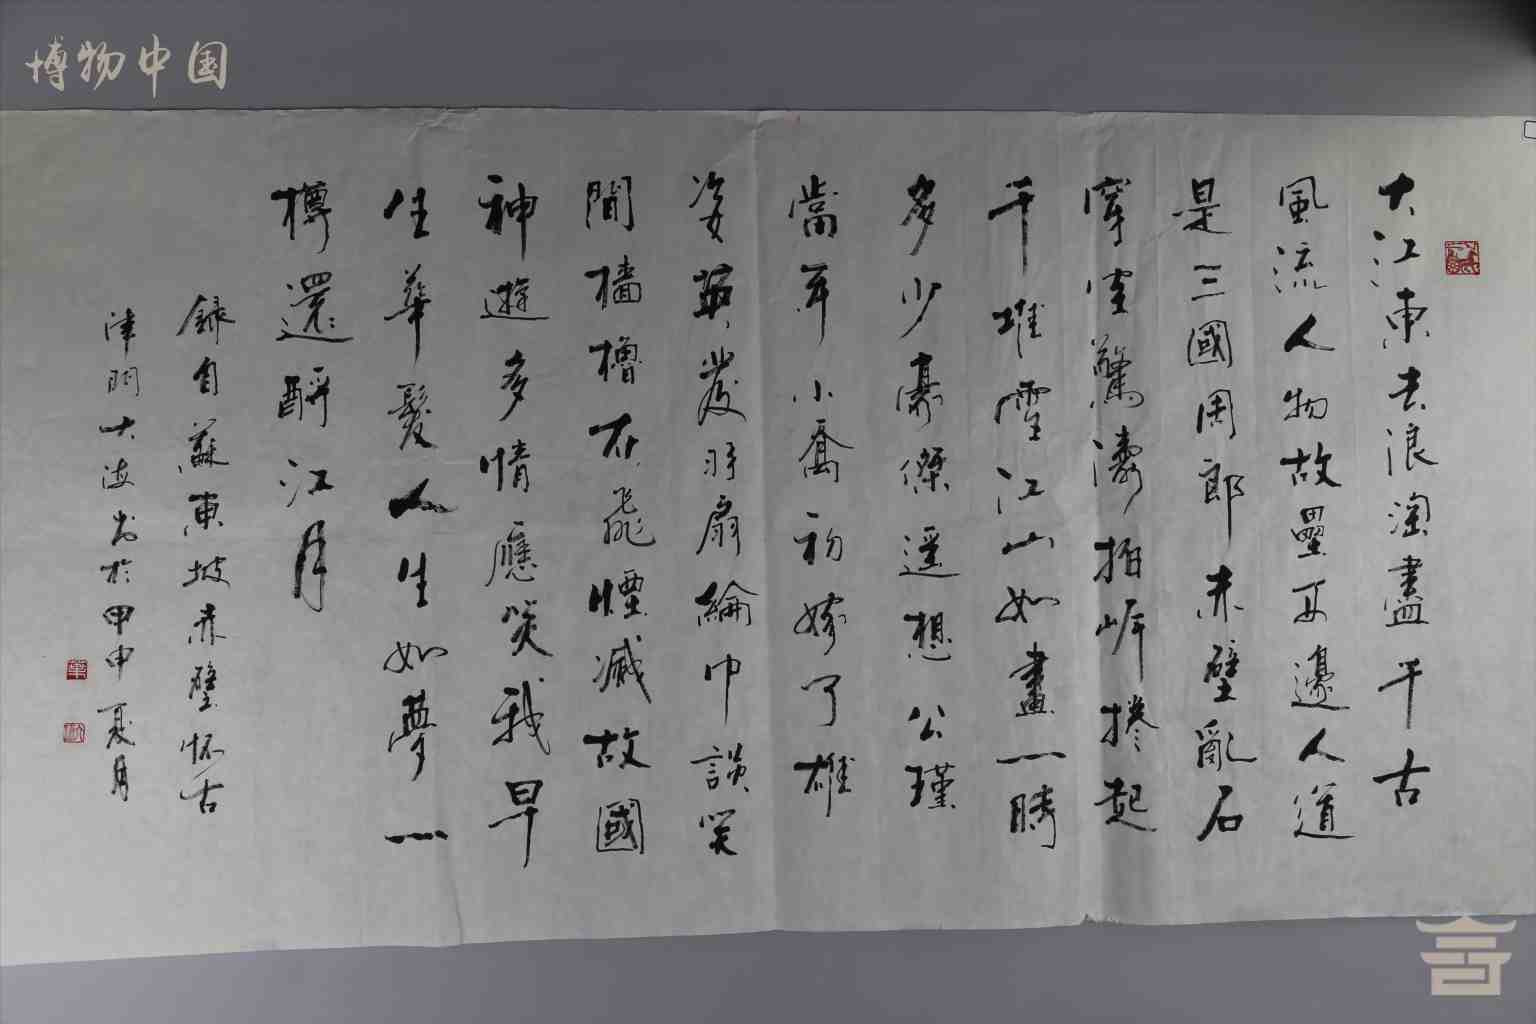 博物中国
大江東去浪淘盡千古
風流人物故壘西邊人道
是三國周郎赤壁亂石
穿空驚濤拍岸捲起
千堆雪江山如畫一時
多少豪傑遥想公瑾
當年小喬初嫁了雄
姿英發羽扇綸巾談笑
間檣櫓灰飛煙滅故國
神遊多情應笑我早
生華髮人生如夢一
樽還酹江月
錄自蘇東坡赤壁怀古
津門大海书於甲申夏月